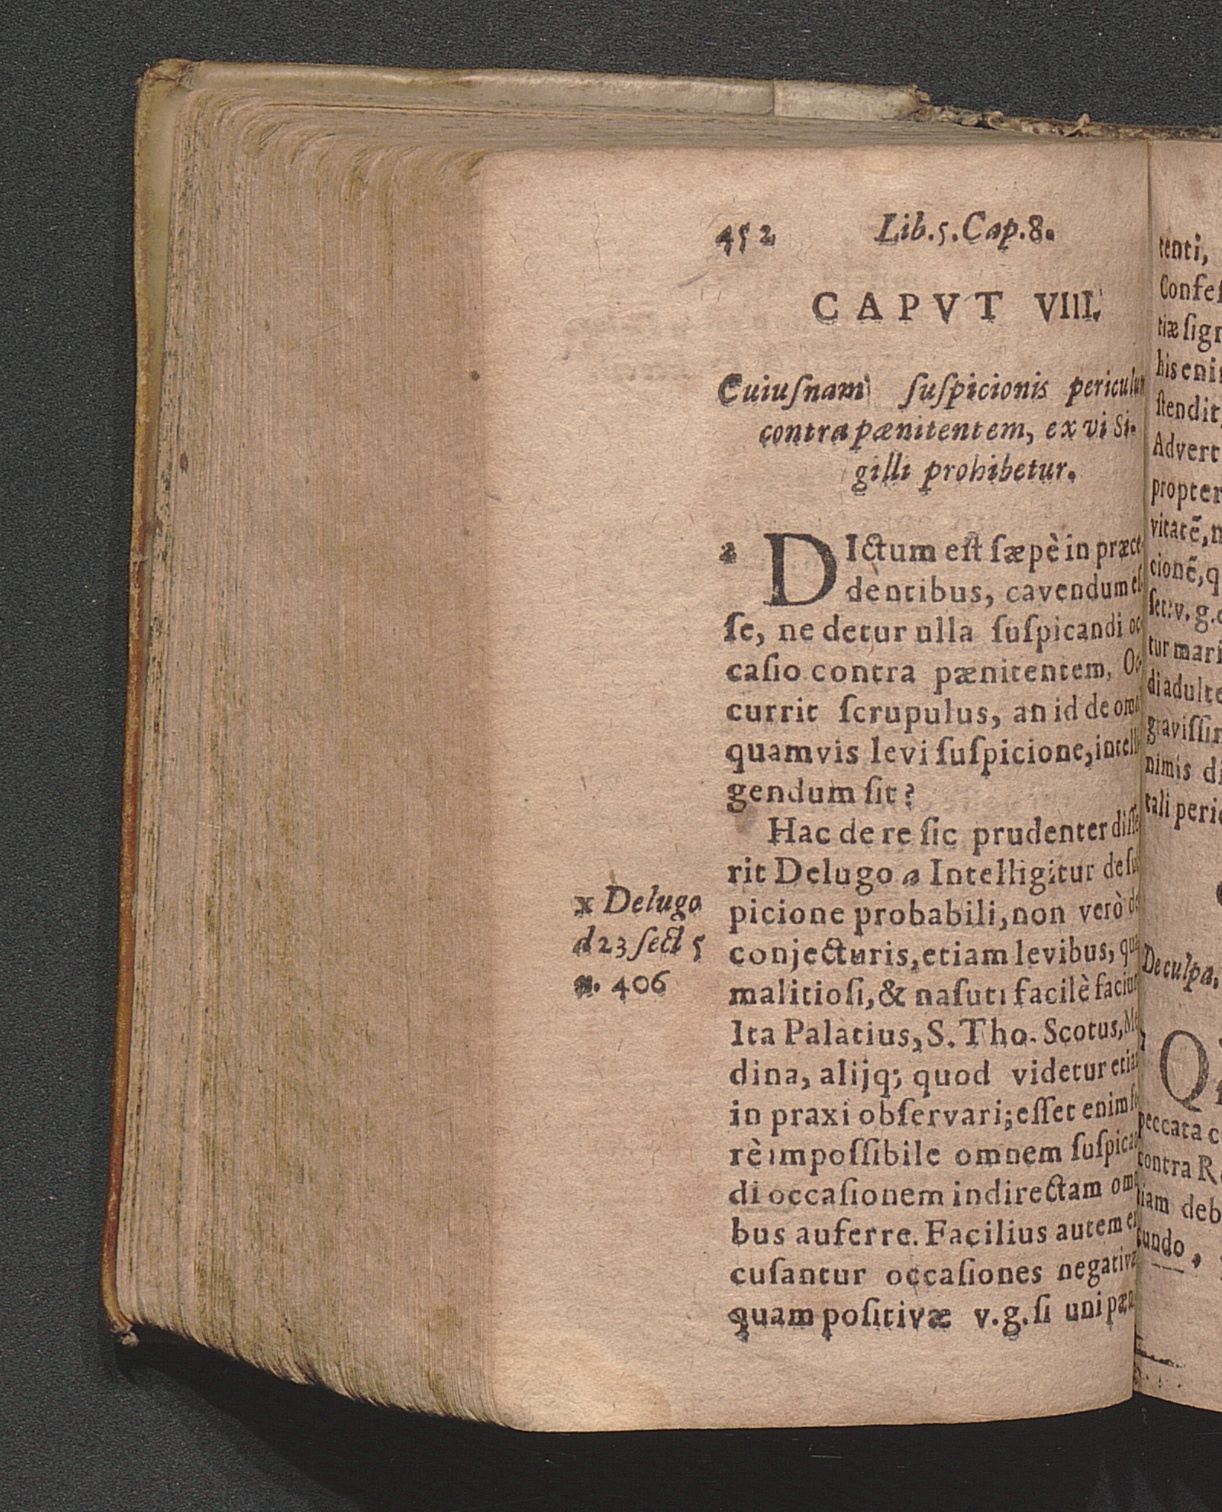 452 Lib.5.Cap.8.
CAPVT VIII.
Cuiuſnam ſuſpicionis periculum
contra pænitentem, ex vi Si-
gilli prohibetur.
2 DIctum eſt ſæpè in præce-
dentibus, cavendum eſ-
ſe, ne detur ulla ſuſpicandi oc
caſio contra pænitentem, Oc-
currit ſcrupulus, an id de omni
quamvis levi ſuſpicione, intelli
gendum ſit?
Hac de re ſic prudenter diſſe
rit Delugo a Intelligitur de ſuſ
picione probabili, non verò de
conjecturis, etiam levibus, quas
malitioſi, & naſuti facilè faciunt
Ita Palatius, S. Tho. Scotus, Me
dina, alijq; quod videtur etiam
in praxi obſervari; eſſet enim fe
rè impoſſibile omnem ſuſpican
di occaſionem indirectam omni
bus auferre. Facilius autem ex
cuſantur occaſiones negativæ
quam poſitivæ v.g. ſi uni pæni
x Delugo
d 23 ſect 5
n. 406
tenti,
Confeſ
tiæ ſign
his eni
ſtendit,
Advert
propter
vitatē, n
cionē, q
ſet: v. g.
tur mari
di adulte
graviſſi
nimis di
tali peri
De culpa,
Q
peccata c
contra R
iam deb
cundo,